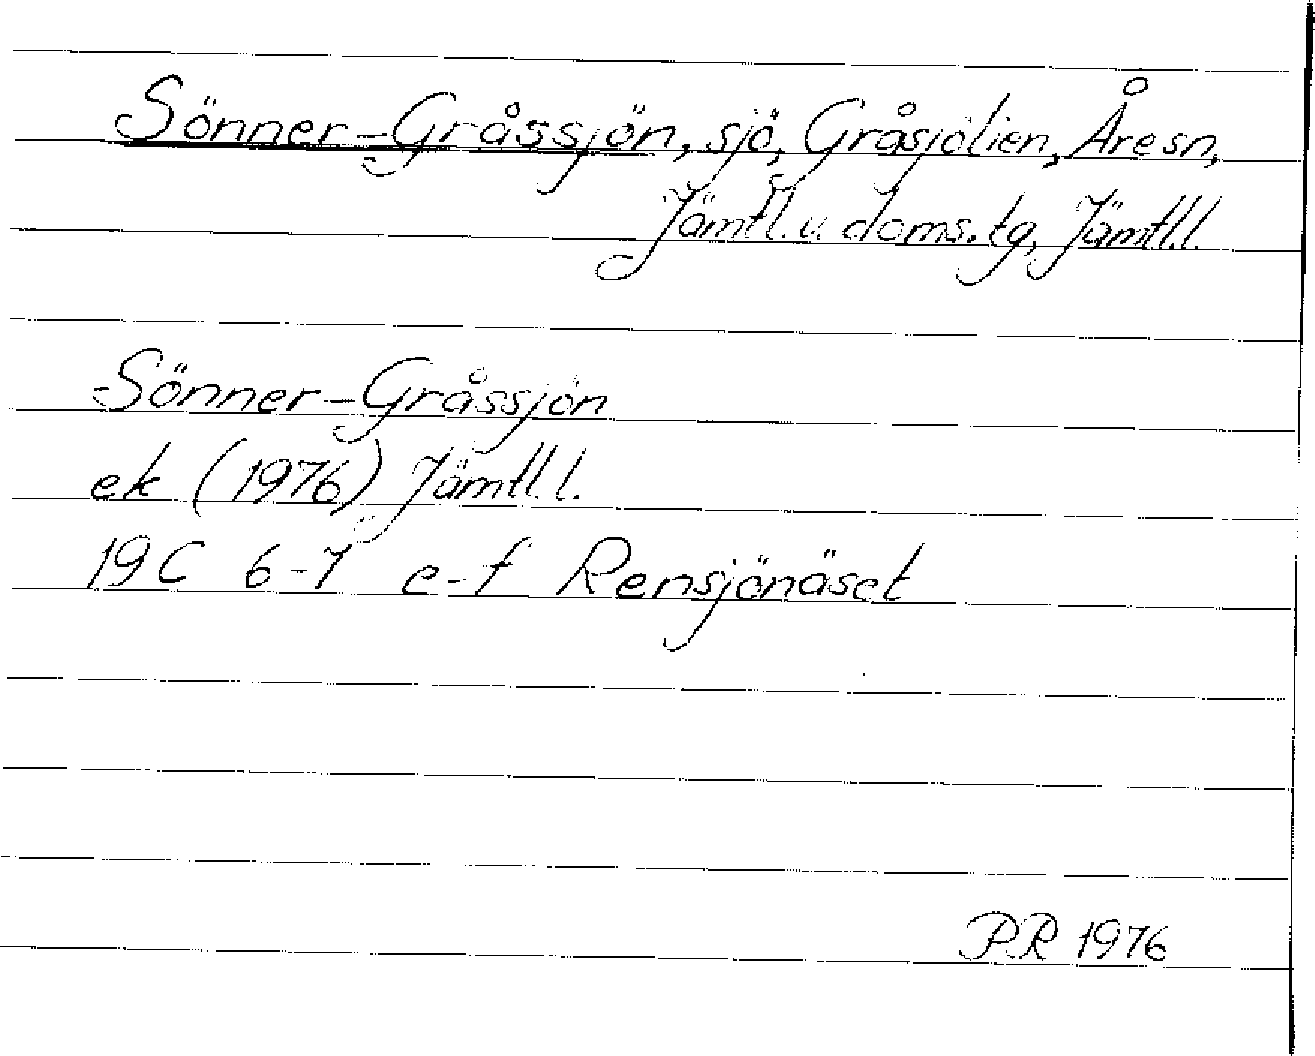 Sönner-Gråssjön, sjö, Gråsjölien, Åre sn,
Jämtl. v. doms. tg, Jämtl.l.
Sönner-Gråssjön
ek (1976) Jämtl.l.
19C 6-7 e-f Rensjönäset
P.R 1976